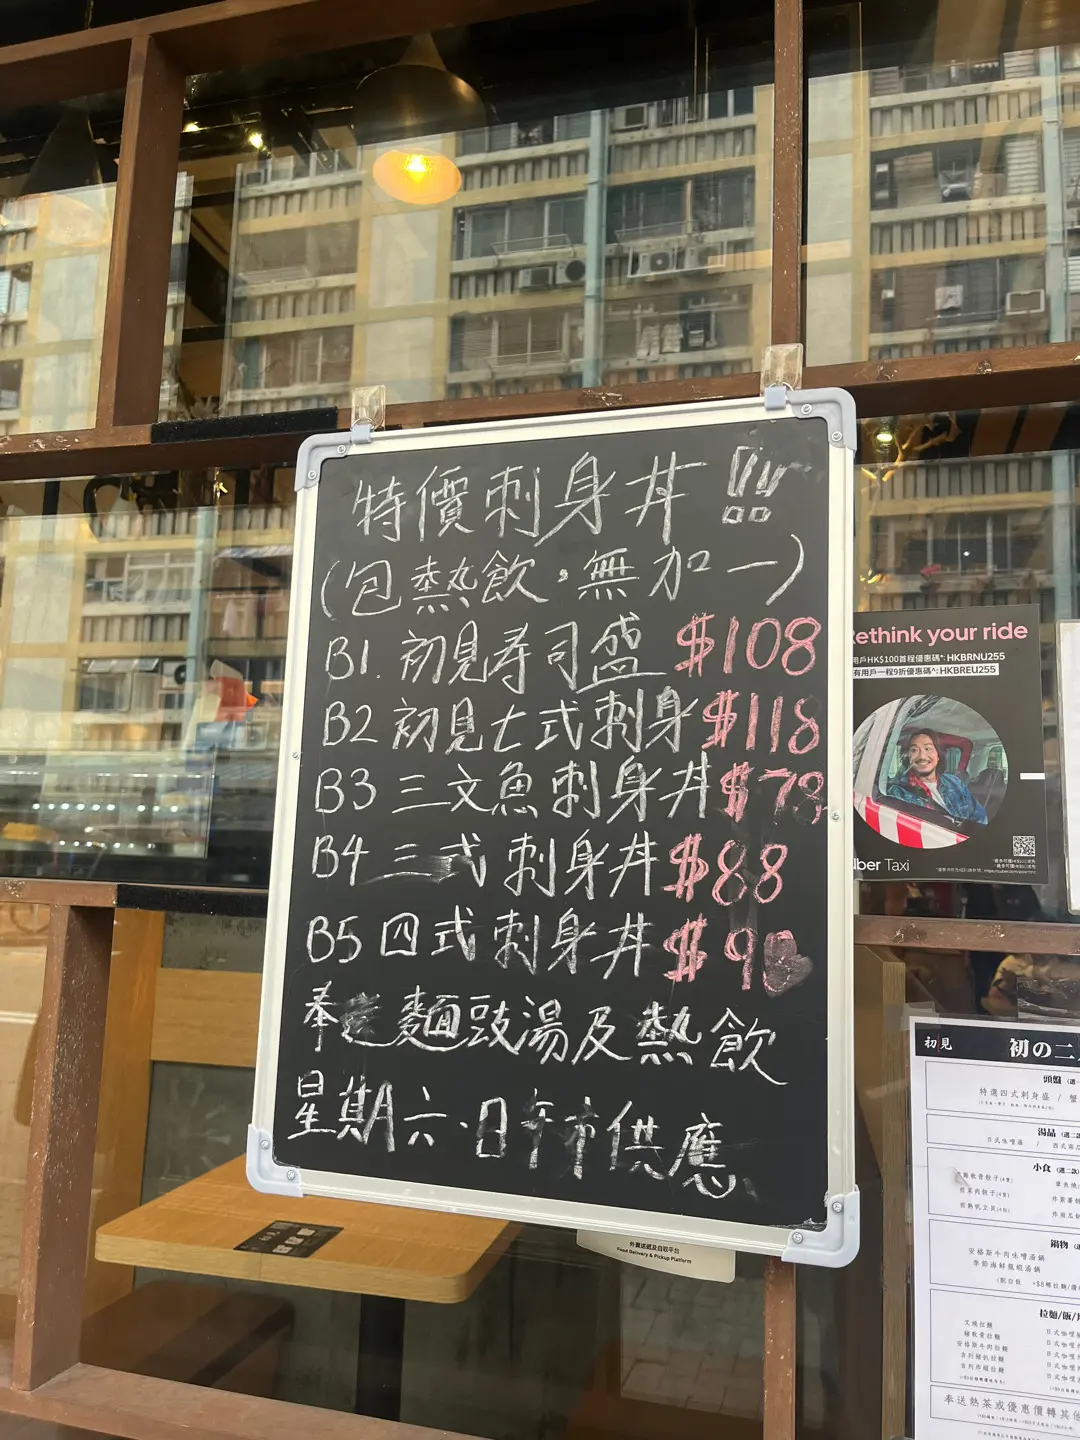 特價刺身丼!!
(包熱飲，無加一)
B1. 初見寿司盛 $108
B2 初見七式刺身 $118
B3 三文魚刺身丼 $78
B4 三式刺身丼 $88
B5 四式刺身丼 $9
奉送麵豉湯及熱飲
星期六·日午市供應
Rethink your ride
用戶HK$100首程優惠碼*: HKBRNU255
有用戶一程9折優惠碼^: HKBREU255
Uber Taxi
外賣送遞及自取平台
Food Delivery & Pickup Platform
初見 初の二人
頭盤
特選四式刺身盛 / 蟹
湯品
日式味噌湯 /
小食
鍋物
安格斯牛肉味噌湯鍋
季節海鮮龍蝦湯鍋
拉麵/飯/
叉燒拉麵
豬軟骨拉麵
安格斯牛肉拉麵
吉列豬扒拉麵
奉送熱茶或優惠價轉其他